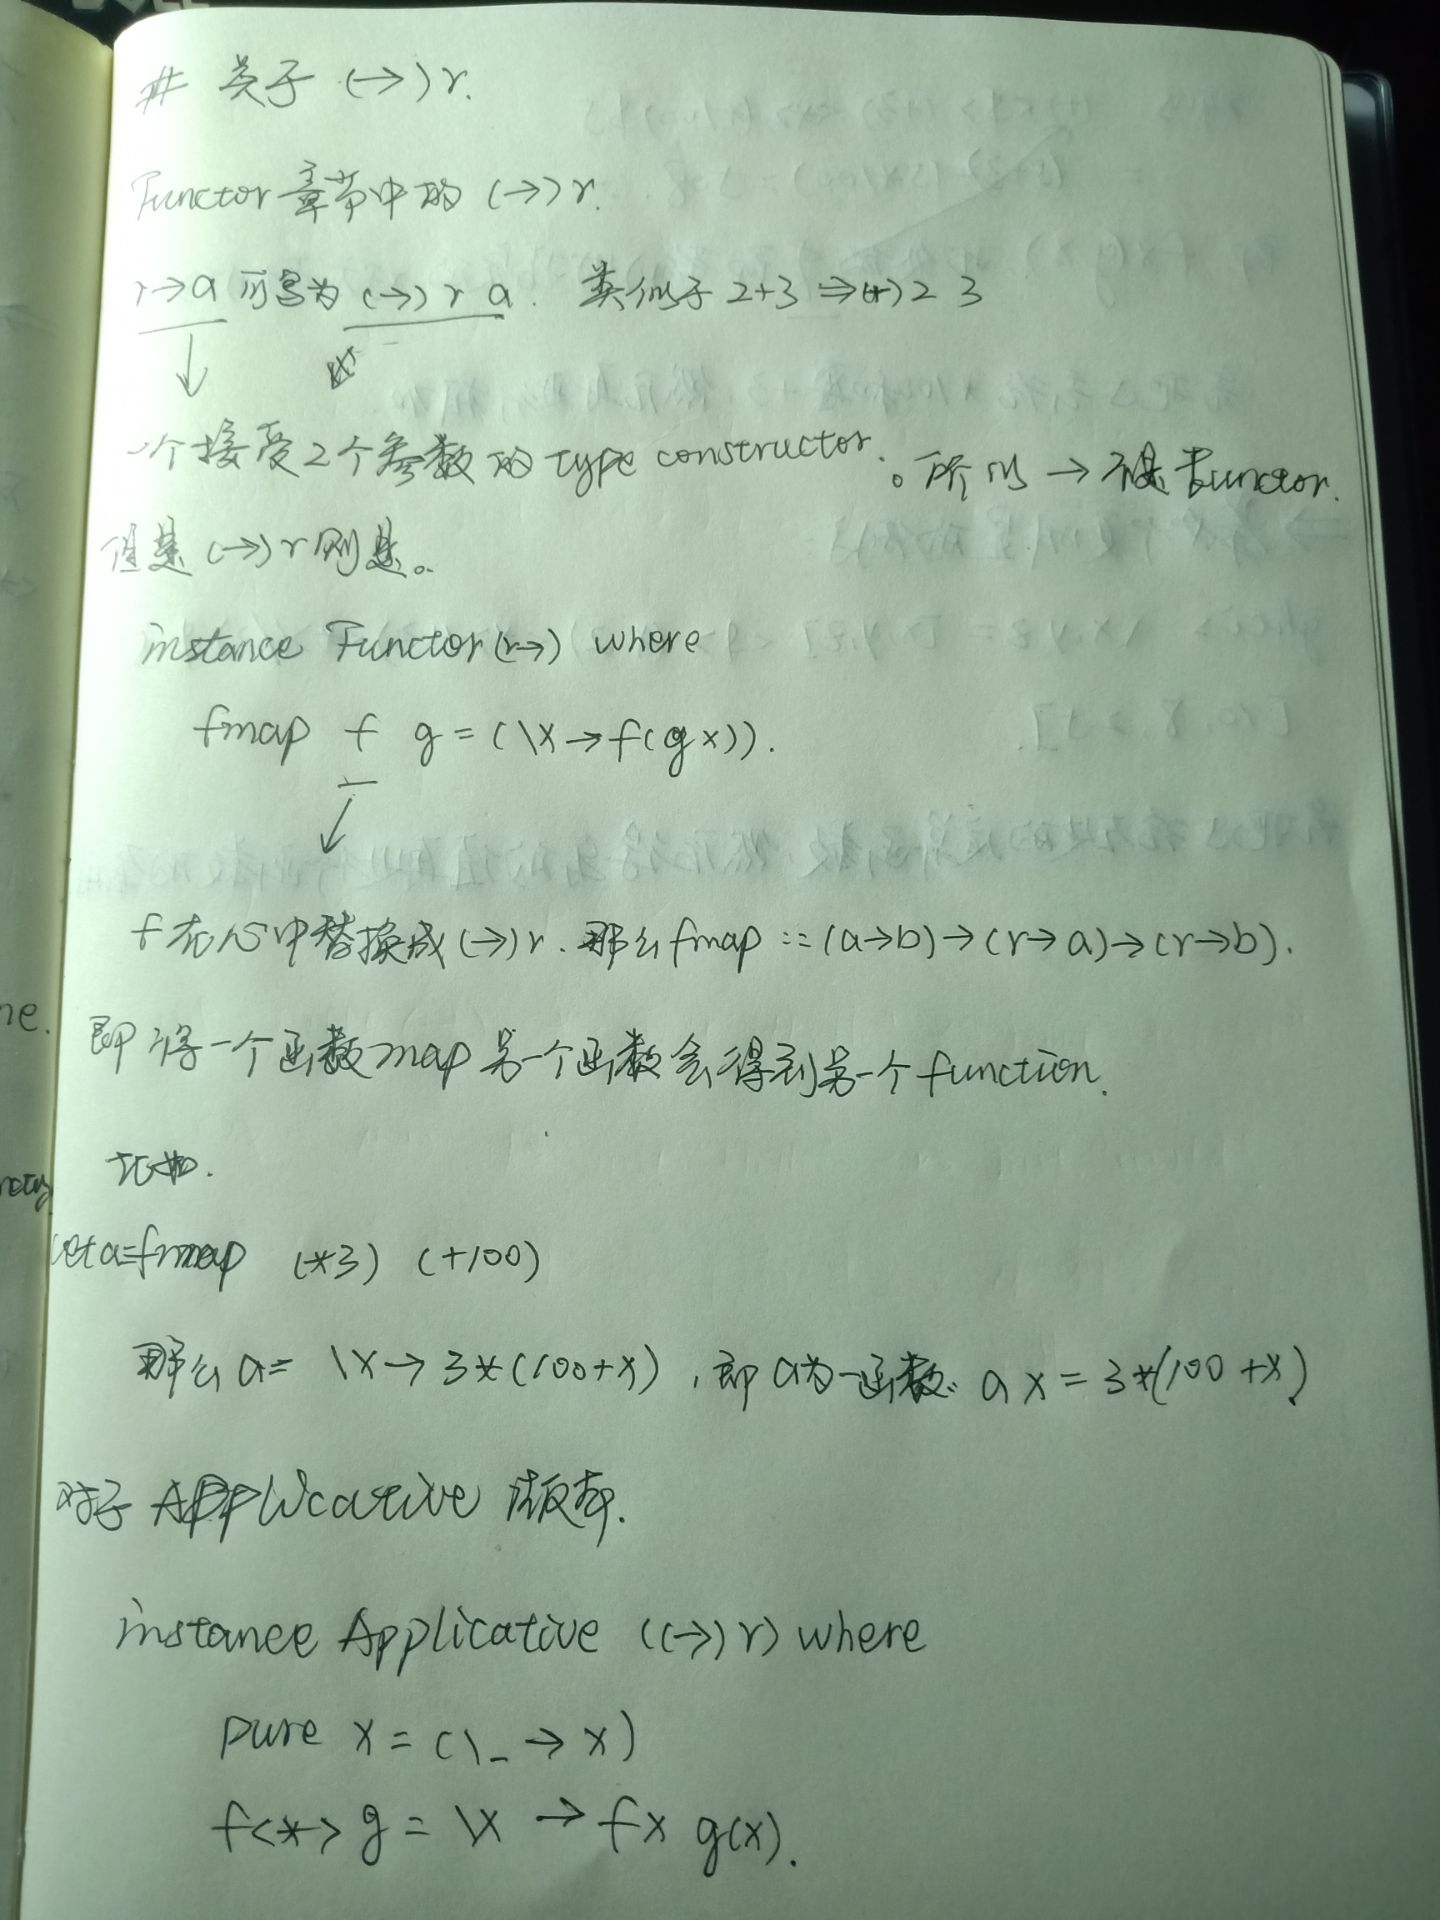 # 关于 (→) r.
Functor 章节中的 (→) r.
r→a 可写为 (→) r a. 类似于 2+3 ⇒ (+) 2 3
一个接受2个参数的 type constructor. 所以 → 不是 Functor.
但是 (→) r 则是。
instance Functor (r→) where
fmap f g = (\x → f(g x)).
f 在心中替换成 (→) r. 那么 fmap :: (a→b)→(r→a)→(r→b).
即 将一个函数 map 另一个函数会得到另一个 function.
比如.
let a = fmap (*3) (+100)
那么 a = \x → 3*(100+x), 即 a为一函数. a x = 3*(100+x)
对于 Applicative 版本.
instance Applicative ((→) r) where
pure x = (\_ → x)
f <*> g = \x → f x g(x).